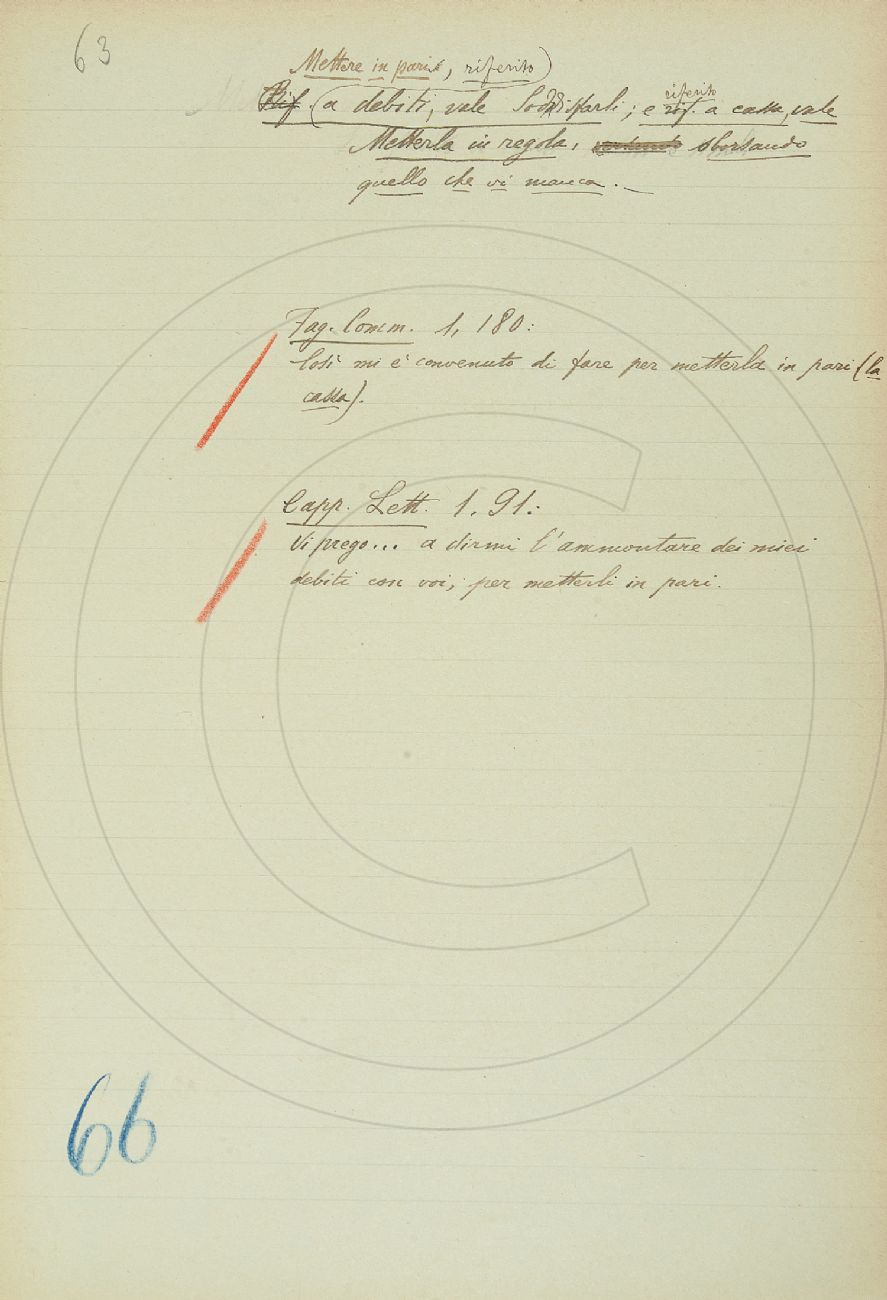 63
Mettere in pari, riferito
Rif. a debiti, vale Soddisfarli; e riferito rif. a cassa, vale
Metterla in regola, sborsando
quello che vi manca. _
Fag. Comm. 1, 180:
Così mi è convenuto di fare per metterla in pari (la
cassa).
Capp. Lett. 1. 91:
Vi prego... a dirmi l'ammontare dei miei
debiti con voi, per metterli in pari.
66